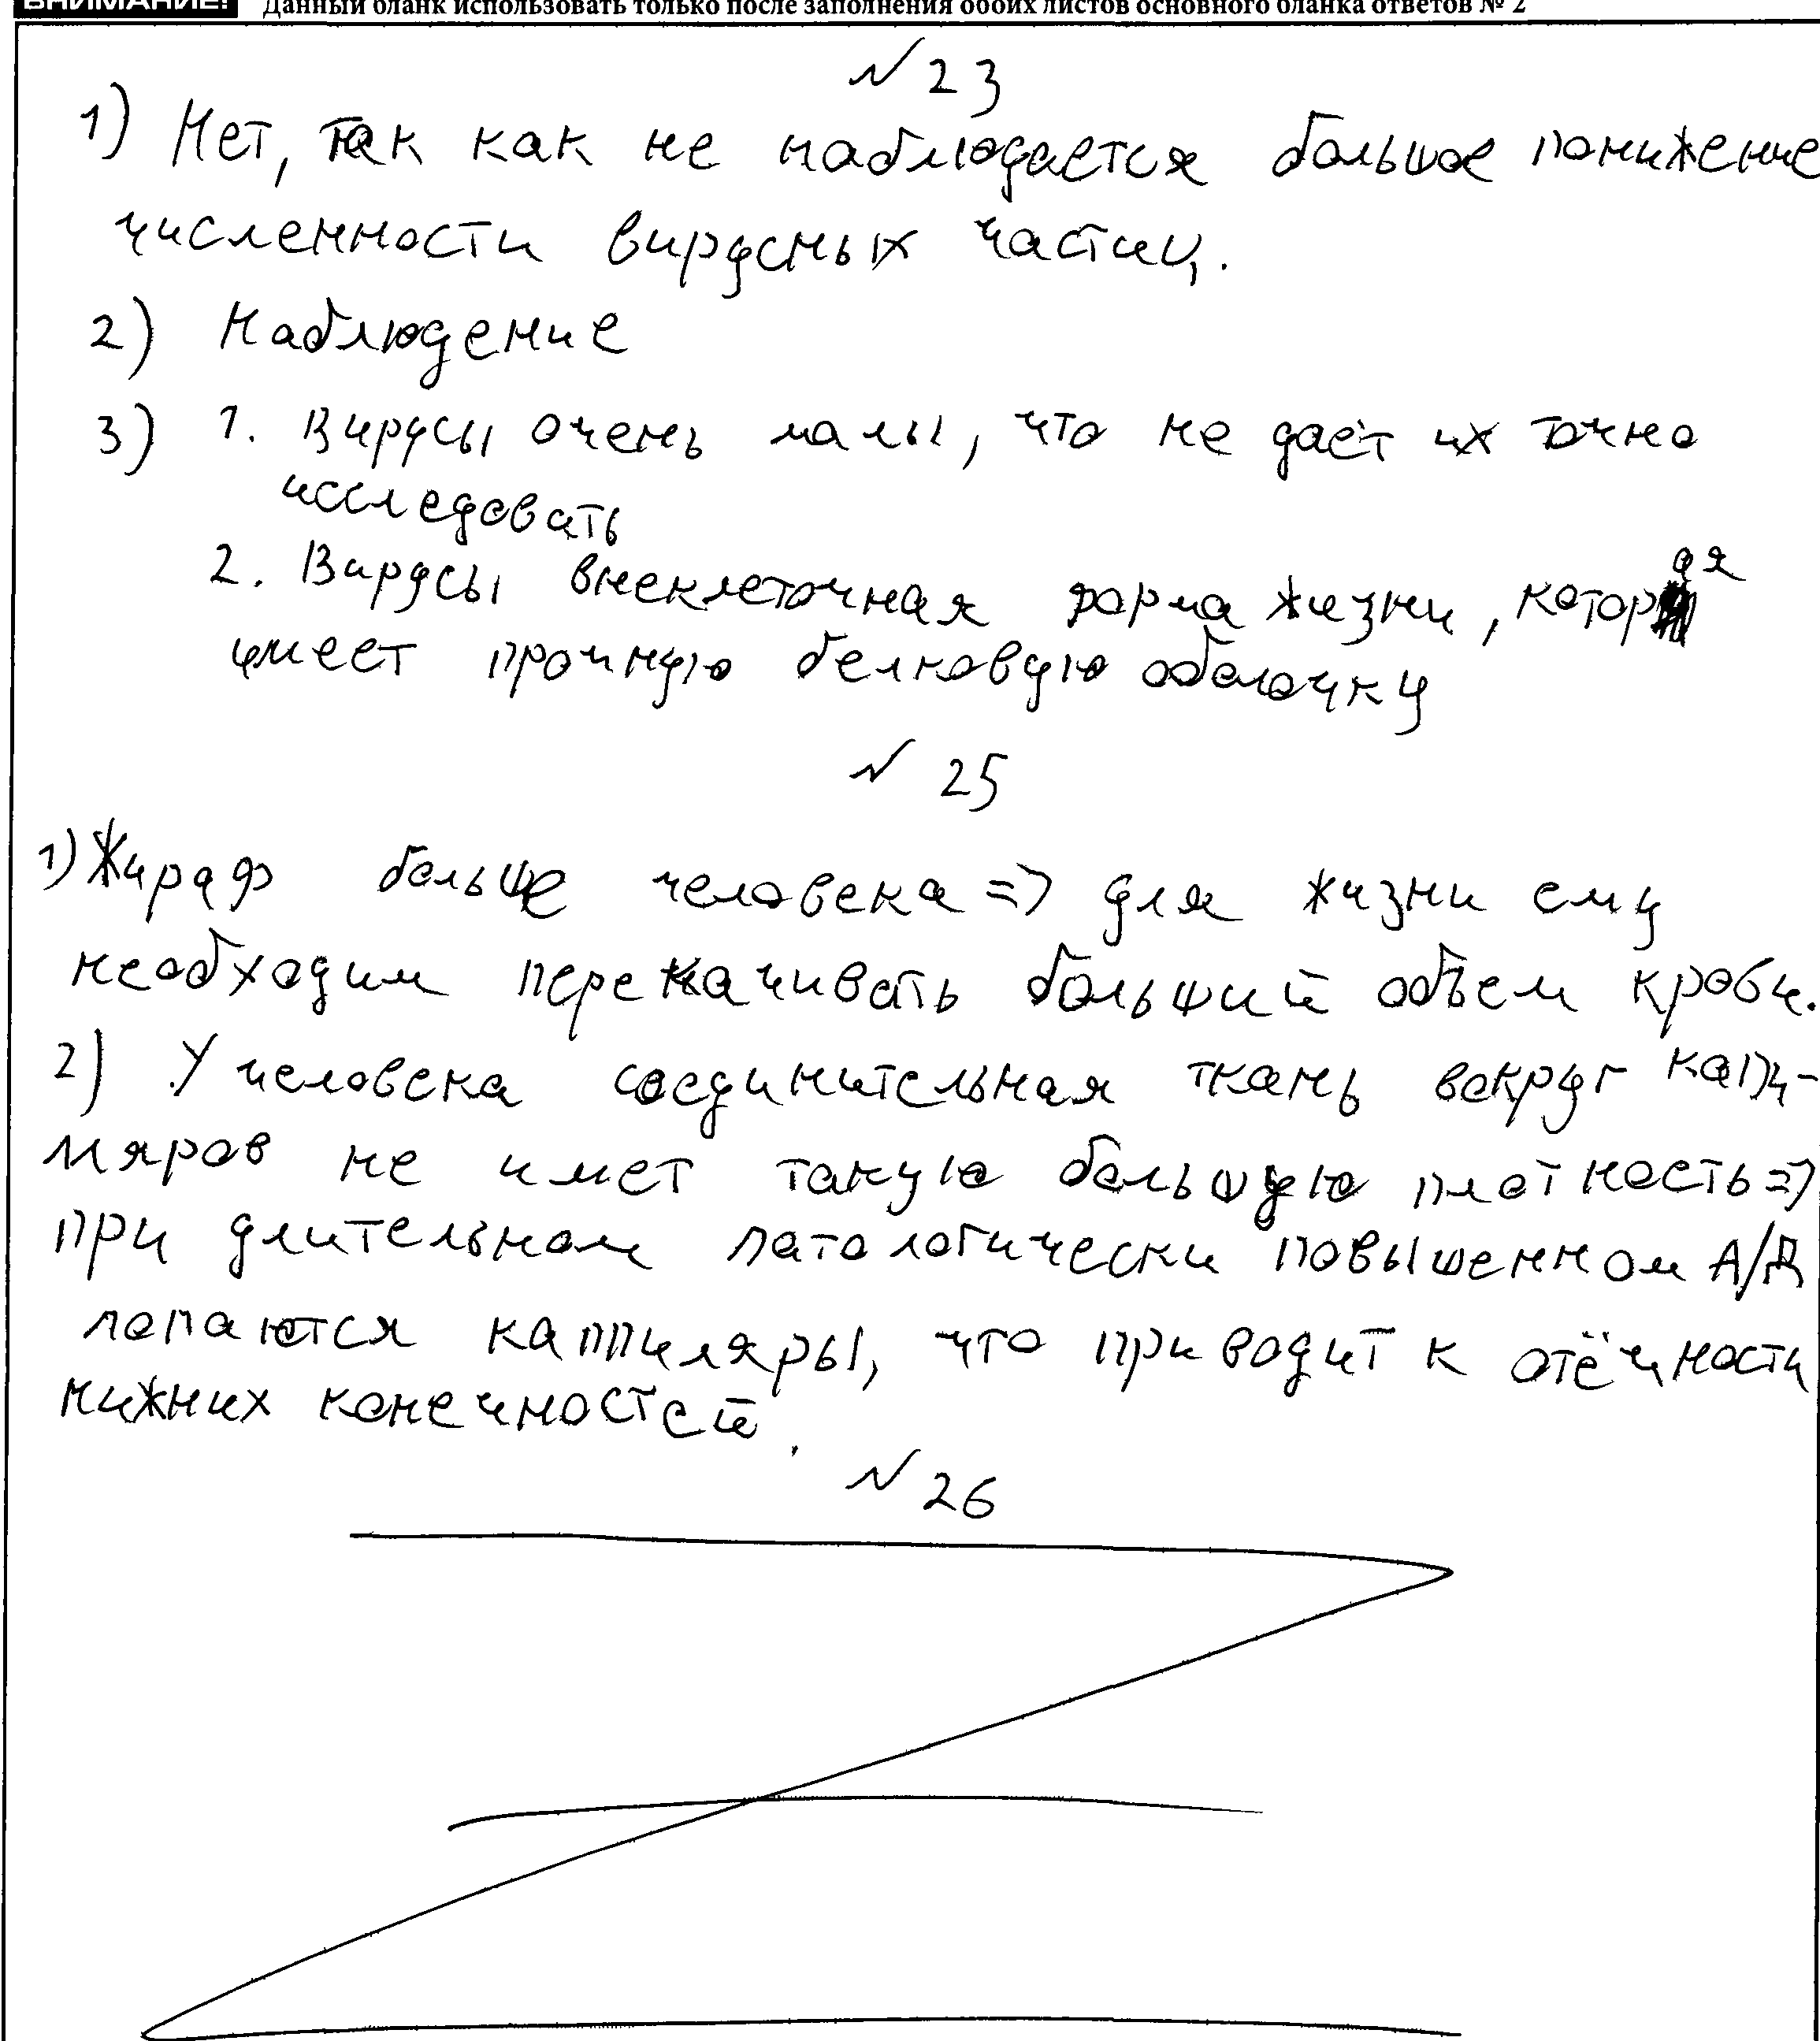 ВНИМАНИЕ! Данный бланк использовать только после заполнения обоих листов основного бланка ответов № 2
№ 23
1) Нет, так как не наблюдается большое понижение
численности вирусных частиц.
2) Наблюдение
3) 1. Вирусы очень малы, что не даёт их точно
исследовать
2. Вирусы внеклеточная форма жизни, которая
имеет прочную белковую оболочку
№ 25
1) Жираф больше человека => для жизни ему
необходим перекачивать больший объем крови.
2) У человека соединительная ткань вокруг капи-
ляров не имет такую большую плотность =>
при длительном патологически повышенном А/Д
лопаются каппиляры, что приводит к отёчности
нижних конечностей.
№ 26